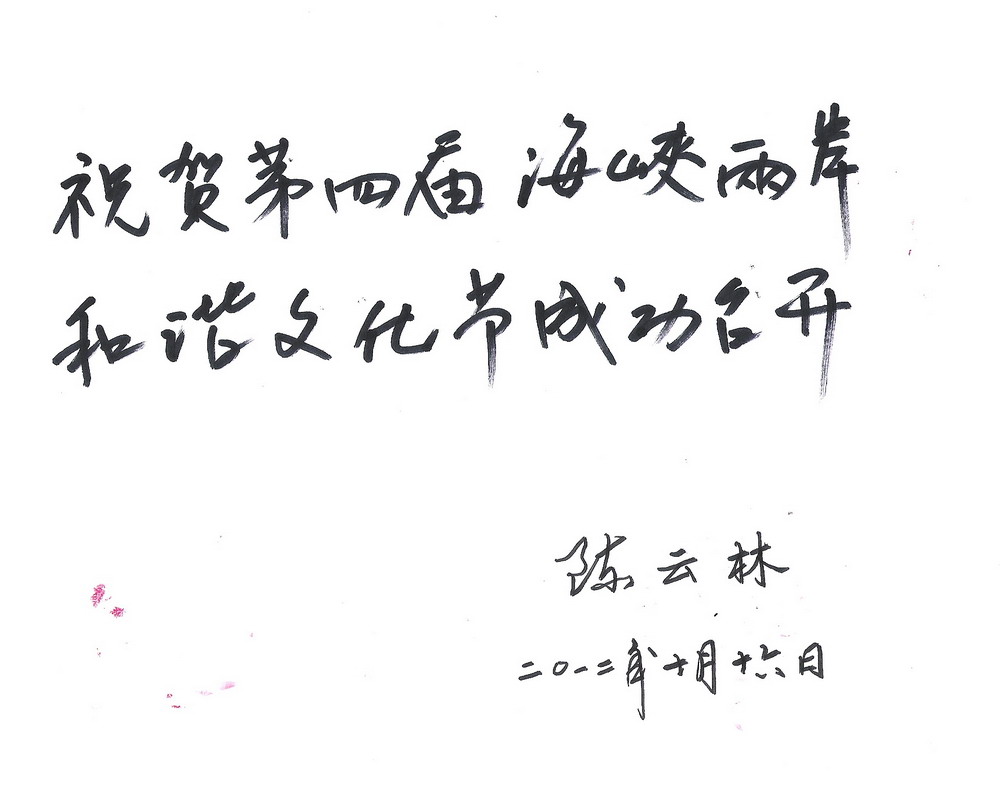 祝贺第四届海峡两岸
和谐文化节成功召开
陈云林
二〇一二年十月十六日